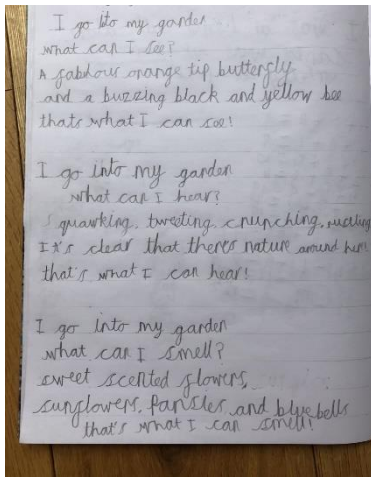 I go into my garden
what can I see?
A fabhour orange tip butterfly
and a buzzing black and yellow bee
thats what I can see!
I go into my garden
what can I hear?
Squawking, tweeting, crunching, rustling
It's clear that theres nature around here!
that's what I can hear!
I go into my garden
what can I smell?
sweet scented flowers,
sunflowers, Pansies, and bluebells
that's what I can smell!